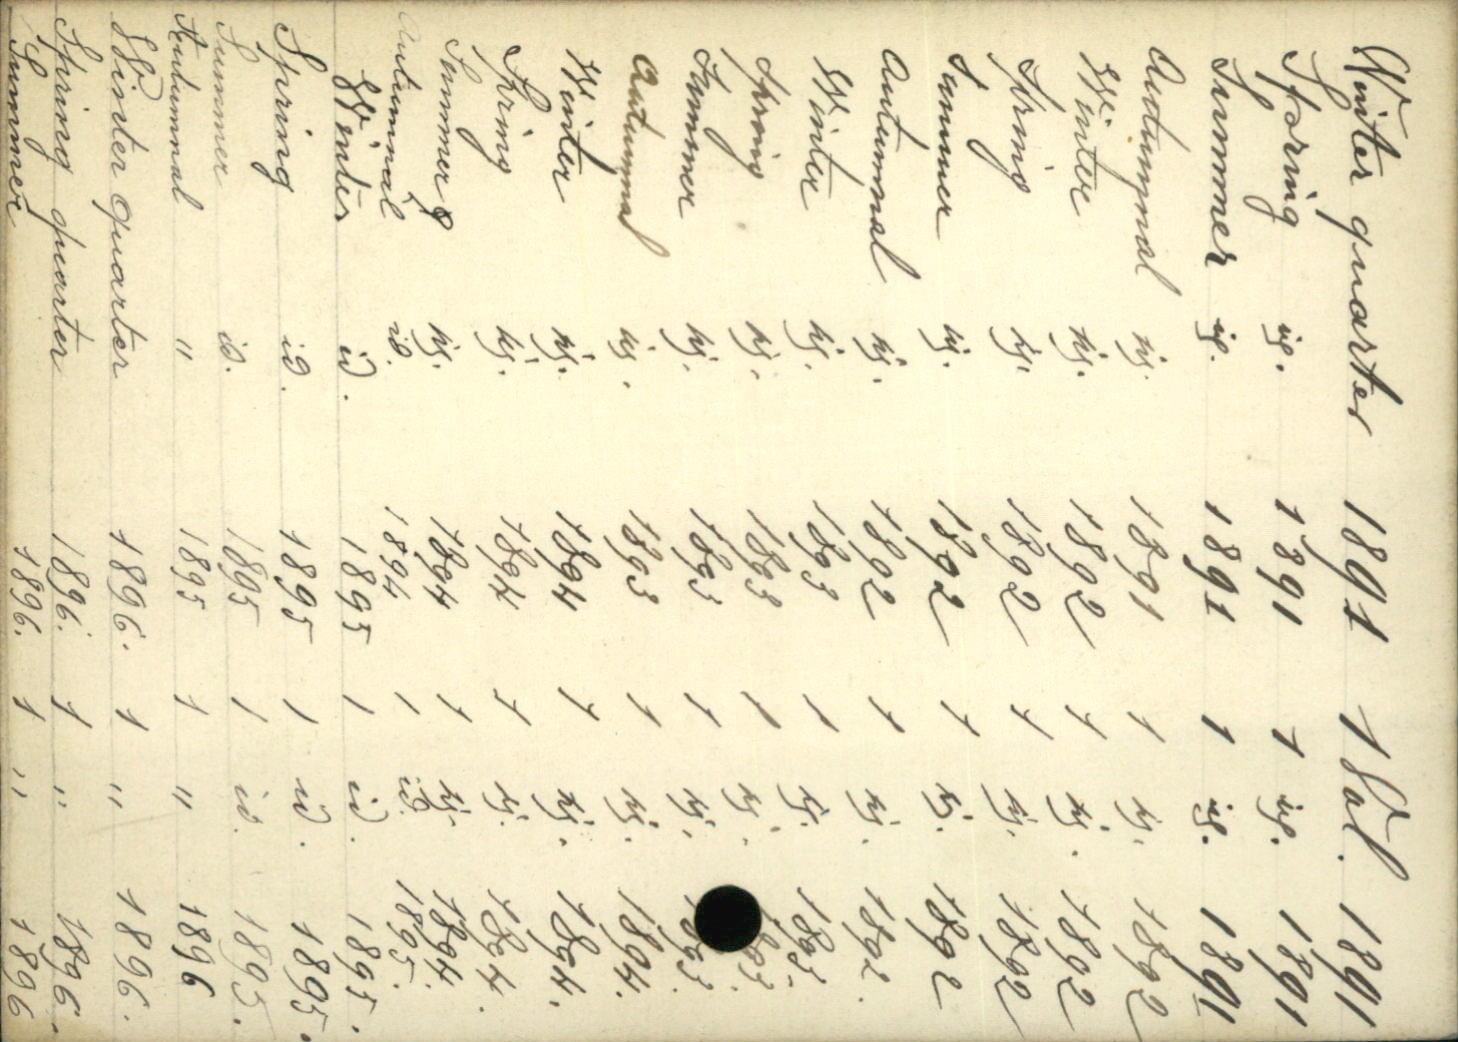 Winter quarter 1891 1 Vol. 1891
Spring id. 1891 1 id. 1891
Summer id. 1891 1 id. 1891
Autumnal id. 1891 1 id. 1892
Winter id. 1892 1 id. 1892
Spring id. 1892 1 id. 1892
Summer id. 1892 1 id. 1892
Autumnal id. 1892 1 id. 1892.
Winter id. 1893 1 id. 1893.
Spring id. 1893 1 id. 1893.
Summer id. 1893 1 id. 1893.
Autumnal id. 1893 1 id. 1894.
Winter id. 1894 1 id. 1894.
Spring id. 1894 1 id. 1894.
Summer q id. 1894 1 id. 1894.
Autumnal id. 1894 1 id. 1895.
Winter id. 1895 1 id. 1895.
Spring id. 1895 1 id. 1895.
Summer id. 1895 1 id. 1895.
Autumnal " 1895 1 " 1896
Winter quarter 1896. 1 " 1896.
Spring quarter 1896. 1 " 1896.
Summer 1896. 1 " 1896